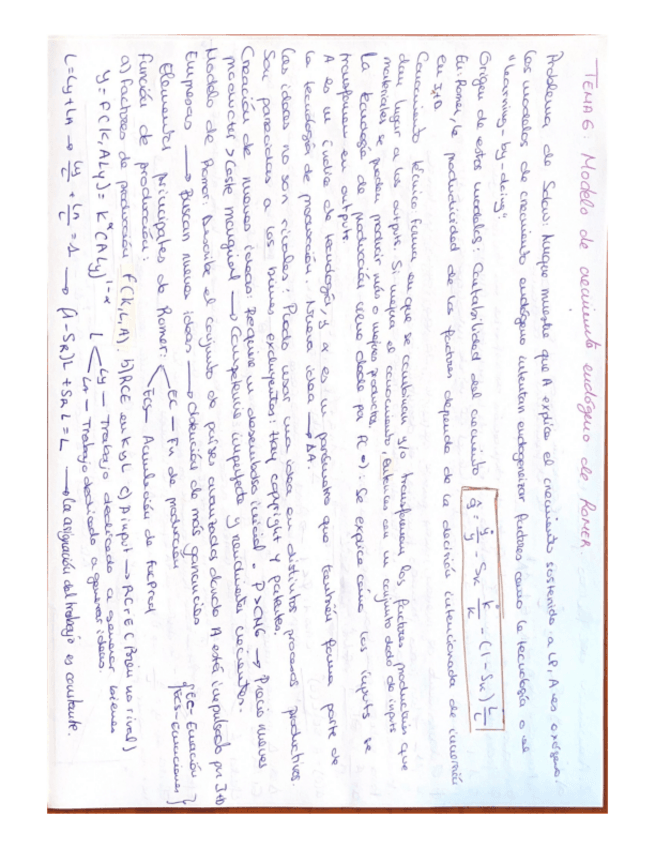 TEMA 6: Modelo de crecimiento endógeno de ROMER.
Problema de Solow: Aunque muestre que A explica el crecimiento sostenido a LP, A es exógeno.
Los modelos de crecimiento endógeno intentan endogeneizar factores como la tecnología o el
"learning-by-doing".
Origen de estos modelos: Contabilidad del crecimiento
Â = ẏ/y - Sk k̇/k - (1-Sk) L̇/L
En Romer, la productividad de los factores depende de la decisión intencionada de invertir
en I+D
Conocimiento técnico: forma en que se combinan y/o transforman los factores productivos que
dan lugar a los outputs. Si mejora el conocimiento, entonces con un conjunto dado de inputs
materiales se pueden producir más o mejores productos.
La tecnología de producción viene dada por F(·): Se explica como los inputs se
transforman en outputs.
A es un índice de tecnología, y α es un parámetro que también forma parte de
la tecnología de producción. Nueva idea → ΔA.
Las ideas no son rivales: Puedo usar una idea en distintos procesos productivos.
Son parecidas a los bienes excluyentes: Hay copyright y patentes.
Creación de nuevas ideas: Requiere un desembolso inicial. P > CMG → Precio nuevos
productos > Coste marginal → Competencia imperfecta y rendimientos crecientes.
Modelo de Romer: Describe el conjunto de países avanzados donde A está impulsado por I+D
Empresas → Buscan nuevas ideas → Obtención de más ganancias
Elementos principales de Romer: EC - Fn de producción
Ecs - Acumulación de FacProd
{EC - Ecuación
Ecs - ecuaciones}
Función de producción:
a) Factores de producción F(K,L,A). b) RCE en K y L c) A input → RCrE (Bien no rival)
Y = F(K, ALy) = K^α (ALy)^1-α
L Ly - Trabajo dedicado a generar bienes
LA - Trabajo dedicado a generar ideas.
L = Ly + LA → Ly/L + LA/L = 1 → (1-SR)L + SR L = L → La asignación del trabajo es constante.